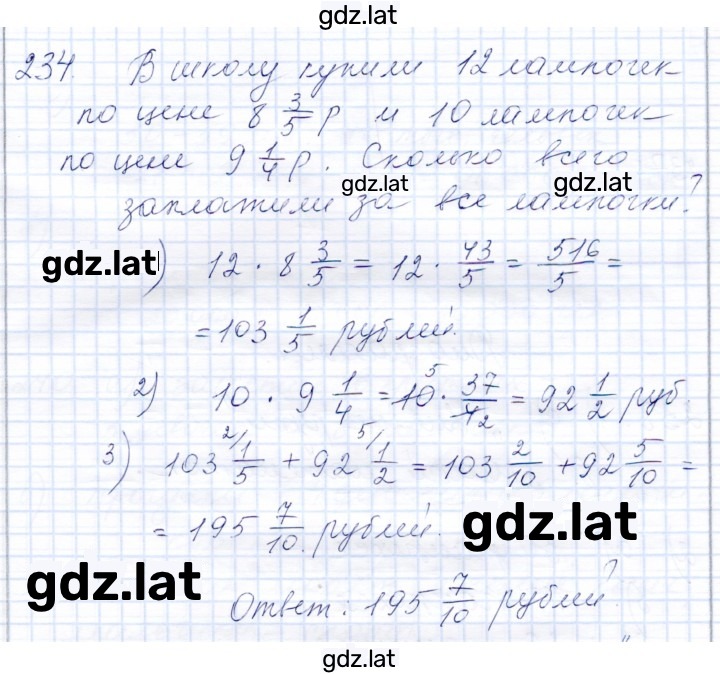 gdz.lat
234. В школу купили 12 лампочек
по цене 8 3/5 р и 10 лампочек
по цене 9 1/4 р. Сколько всего
gdz.lat gdz.lat
заплатили за все лампочки?
gdz.lat
1) 12 · 8 3/5 = 12 · 43/5 = 516/5 =
= 103 1/5 рублей.
2) 10 · 9 1/4 = 10 5 · 37/4 2 = 92 1/2 руб.
3) 103 2/ 1/5 + 92 5/ 1/2 = 103 2/10 + 92 5/10 =
= 195 7/10 рублей.
gdz.lat
gdz.lat
Ответ: 195 7/10 рублей.
gdz.lat